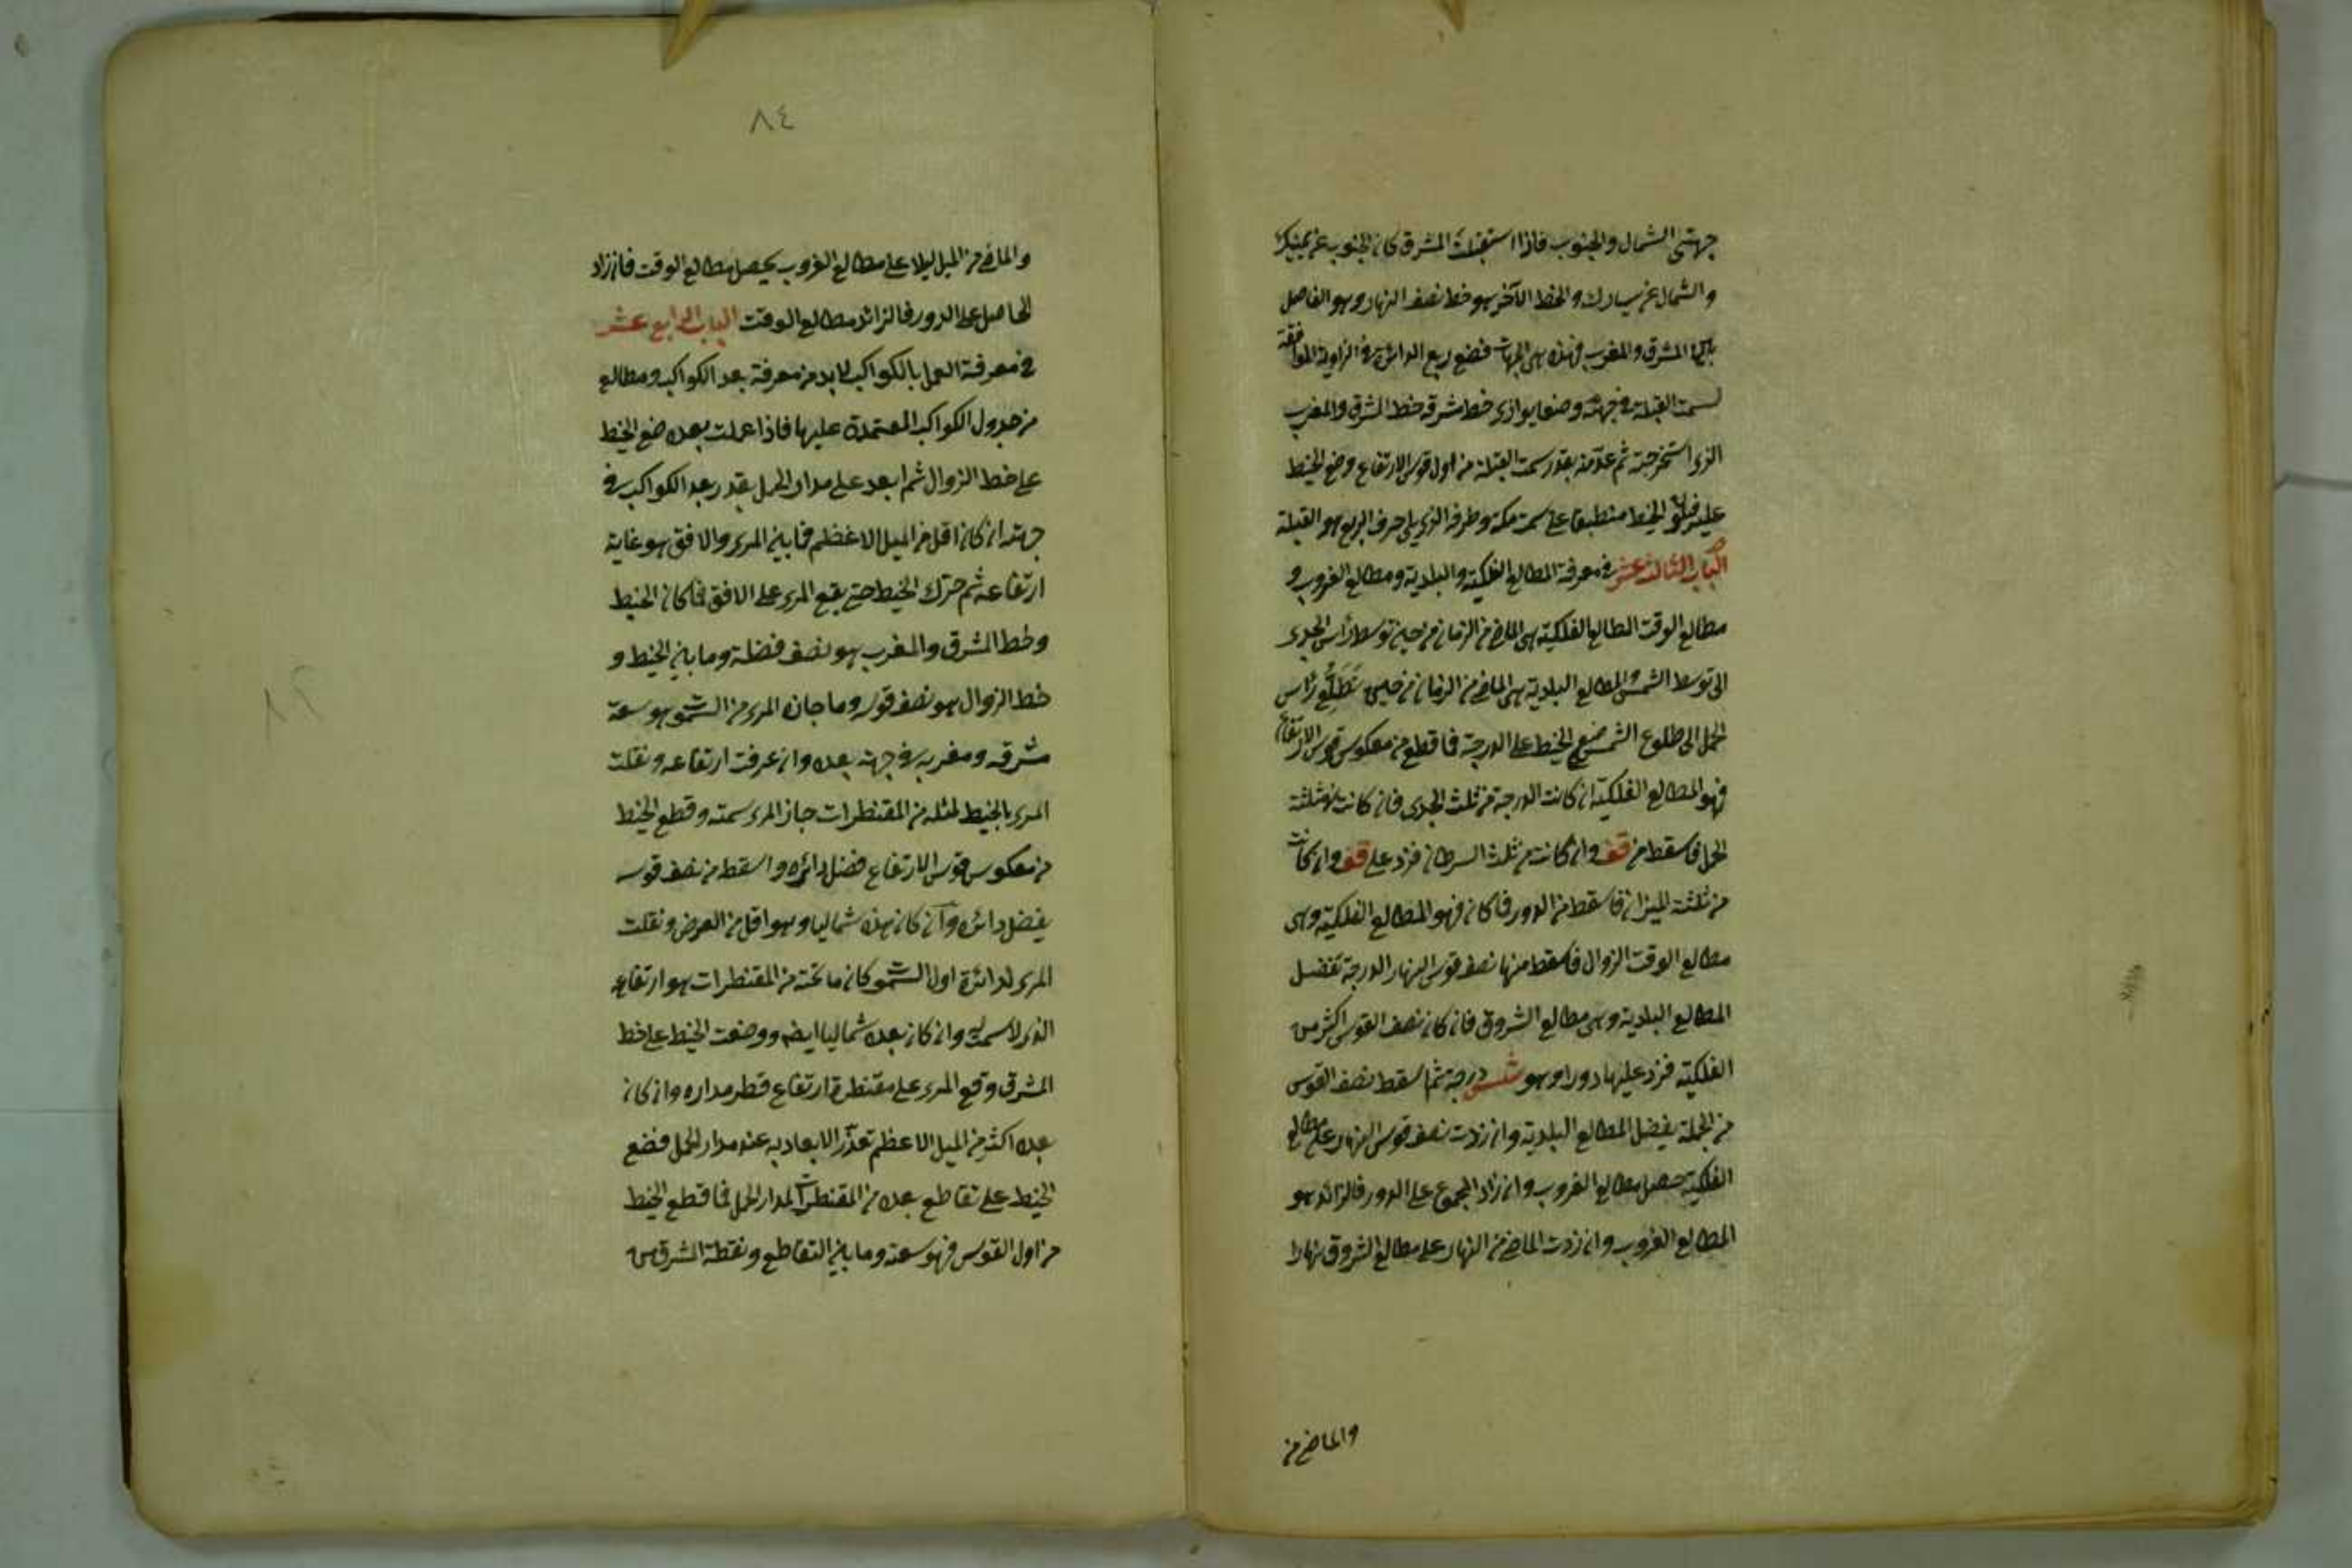 جهتى الشمال والجنوب فاذا استقبلت المشرق كان الجنوب عن يمينك
والشمال عن يسارك والخط الآخر هو خط نصف النهار وهو الفاصل
بين المشرق والمغرب فهذه هى الجهات فضع ربع الدائرة فى الزاوية الموافقة
لسمت القبلة فى جهته وضعا يوازى خط شرقه خط المشرق والمغرب
الذى استخرجته ثم علامة بقدر سمت القبلة من اول قوس الارتفاع وضع الخيط
عليه فيكون الخيط منطبقا على سمت مكة وطرفه الذى يلى حرف الربع هو القبلة
الباب الثالث عشر فى معرفة المطالع الفلكية والبلدية ومطالع الغروب و
مطالع الوقت المطالع الفلكية هى الماضى من الزمان من حين توسط رأس الجدى
الى توسط الشمس والمطالع البلدية هى الماضى من الزمان من حين تطلع رأس
الحمل الى طلوع الشمس ضع الخيط على الدرجة فما قطع من معكوس قوس الارتفاع
فهو المطالع الفلكية ان كانت الدرجة من ثلث الجدى فان كانت من ثلثة
الحمل فاسقط من قف وان كانت من ثلث السرطان فزد على قف وان كانت
من ثلثة الميزان فاسقط من الدور فما كان فهو المطالع الفلكية وهى
مطالع الوقت الزوال فاسقط منها نصف قوس النهار الدرجة تفضل
المطالع البلدية وهى مطالع الشروق فان كان نصف القوس اكثر من
الفلكية فزد عليها دورا وهو شس درجة ثم اسقط نصف القوس
من الجملة يفضل المطالع البلدية وان زدت نصف قوس النهار على مطالع
الفلكية حصل مطالع الغروب وان زاد المجموع على الدور فالزائد هو
المطالع الغروب وان زدت الماضى من النهار على مطالع الشروق نهارا
والماضى من
٨٤
والماضى من الليل ليلا على مطالع الغروب يحصل مطالع الوقت فان زاد
الحاصل على الدور فالزائد مطالع الوقت الباب الرابع عشر
فى معرفة العمل بالكواكب لا بد من معرفة بعد الكواكب ومطالع
من جدول الكواكب المعتمدة عليها فاذا عملت بعده ضع الخيط
على خط الزوال ثم ابعد على مدار الحمل بقدر بعد الكواكب فى
جهته ان كان اقل من الميل الاعظم فما بين المرى والافق هو غاية
ارتفاعه ثم حرك الخيط حتى يقع المرى على الافق فما كان الخيط
وخط المشرق والمغرب هو نصف فضلة وما بين الخيط و
خط الزوال هو نصف قوسه وما جازه المرى من السموت هو سعة
مشرقه ومغربه فى جهة بعده وان عرفت ارتفاعه ونقلت
المرى بالخيط لمثله من المقنطرات جاز المرى سمته وقطع الخيط
من معكوس قوس الارتفاع فضل دائره واسقط من نصف قوسه
يفضل دائره وان كان بعده شماليا وهو اقل من العرض ونقلت
المرى لدائرة اول السموت كان ما تحته من المقنطرات هو ارتفاعه
الذى لا سمت له وان كان بعده شماليا ايضا ووضعت الخيط على خط
المشرق وقع المرى على مقنطرة ارتفاع قطر مداره وان كان
بعده اكثر من الميل الاعظم تعذر الابعاد به عند مدار الحمل فضع
الخيط على تقاطع بعده من المقنطرات لمدار الحمل فما قطع الخيط
من اول القوس فهو سعته وما بين التقاطع ونقطة المشرق من